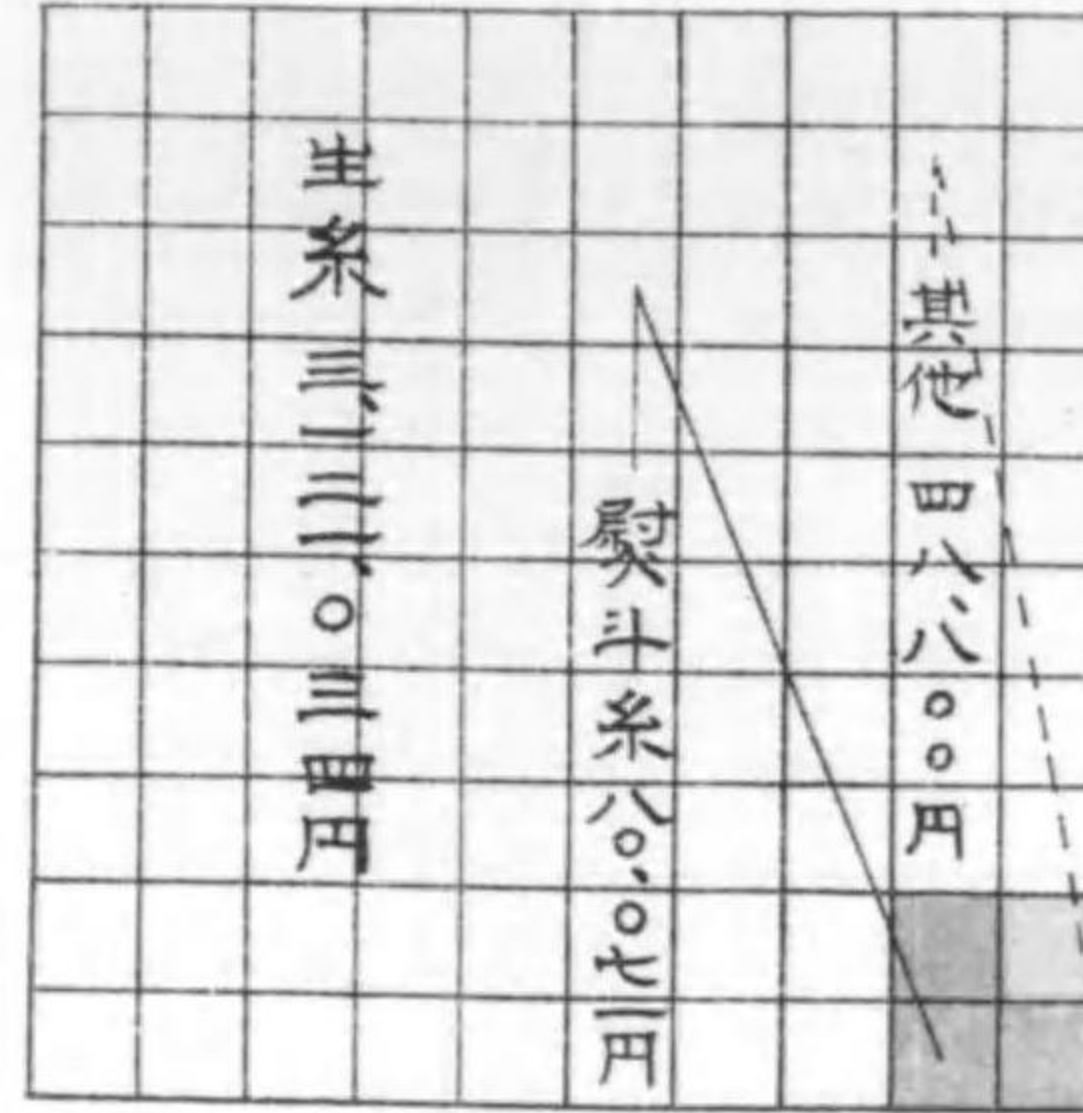 其他 四八、八〇〇円
熨斗糸 八〇、〇七二円
生糸 三、一二二、〇三四円